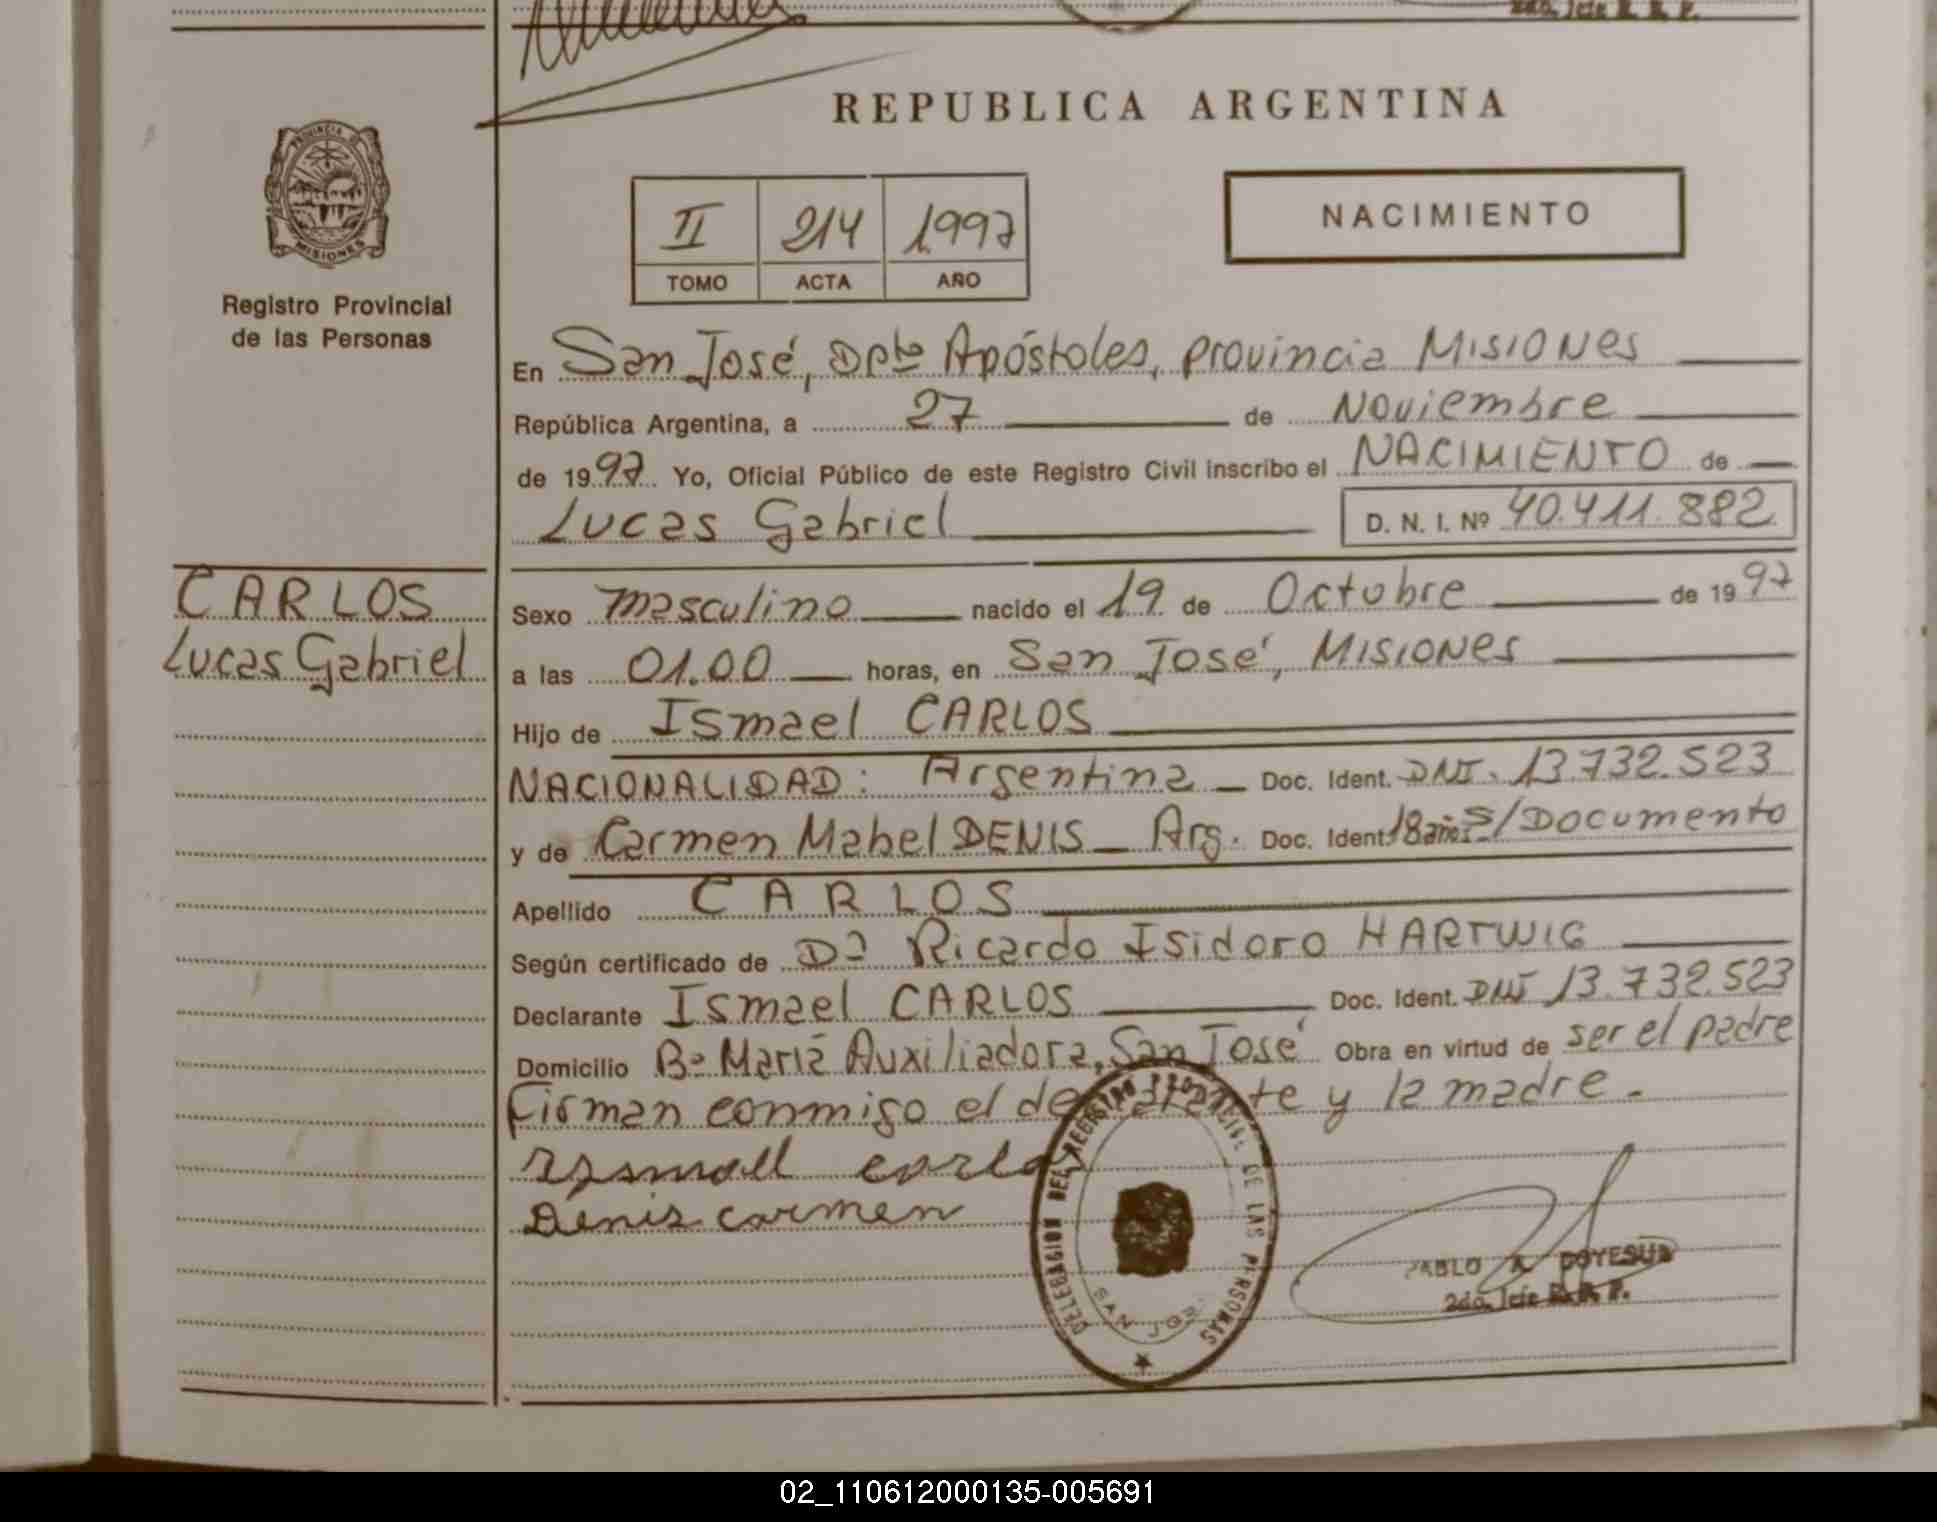 2do. Jefe R. R. P.
REPUBLICA ARGENTINA
PROVINCIA DE
MISIONES
Registro Provincial
de las Personas
II 214 1997
TOMO ACTA AÑO
NACIMIENTO
En San José, Dpto Apóstoles, provincia MISIONES
República Argentina, a 27 de Noviembre
de 1997 Yo, Oficial Público de este Registro Civil inscribo el NACIMIENTO de
Lucas Gabriel D. N. I. Nº 40.411.882
CARLOS
Lucas Gabriel
Sexo masculino nacido el 19 de Octubre de 1997
a las 01.00 horas, en San José, MISIONES
Hijo de Ismael CARLOS
NACIONALIDAD: Argentina Doc. Ident. DNI. 13.732.523
y de Carmen Mabel DENIS Arg. Doc. Ident. 18 años S/Documento
Apellido CARLOS
Según certificado de Dr Ricardo Isidoro HARTWIG
Declarante Ismael CARLOS Doc. Ident. DNI 13.732.523
Domicilio Bº María Auxiliadora, San José Obra en virtud de ser el padre
Firman conmigo el declarante y la madre.
Ismall carlos
Denis carmen
DELEGACION DEL REGISTRO PROVINCIAL DE LAS PERSONAS
SAN JOSE
PABLO A. DOYESUB
2do. Jefe R. R. P.
02_110612000135-005691